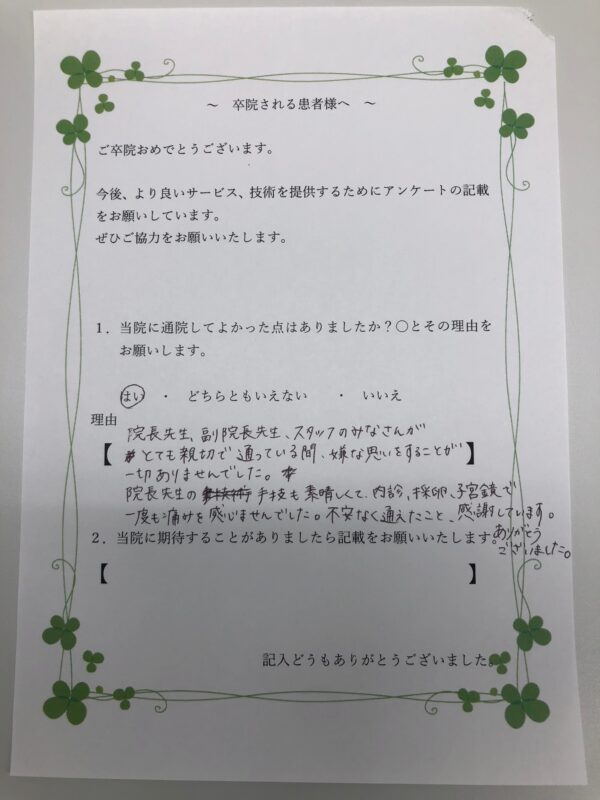 ～ 卒院される患者様へ ～
ご卒院おめでとうございます。
今後、より良いサービス、技術を提供するためにアンケートの記載
をお願いしています。
ぜひご協力をお願いいたします。
1．当院に通院してよかった点はありましたか？○とその理由を
お願いします。
はい ・ どちらともいえない ・ いいえ
理由
院長先生、副院長先生、スタッフのみなさんが
【とても親切で通っている間、嫌な思いをすることが】
一切ありませんでした。
院長先生の手技も素晴しくて、内診、採卵、子宮鏡で
一度も痛みを感じませんでした。不安なく通えたこと、感謝しています。
ありがとう
ございました。
2．当院に期待することがありましたら記載をお願いいたします。
【 】
記入どうもありがとうございました。